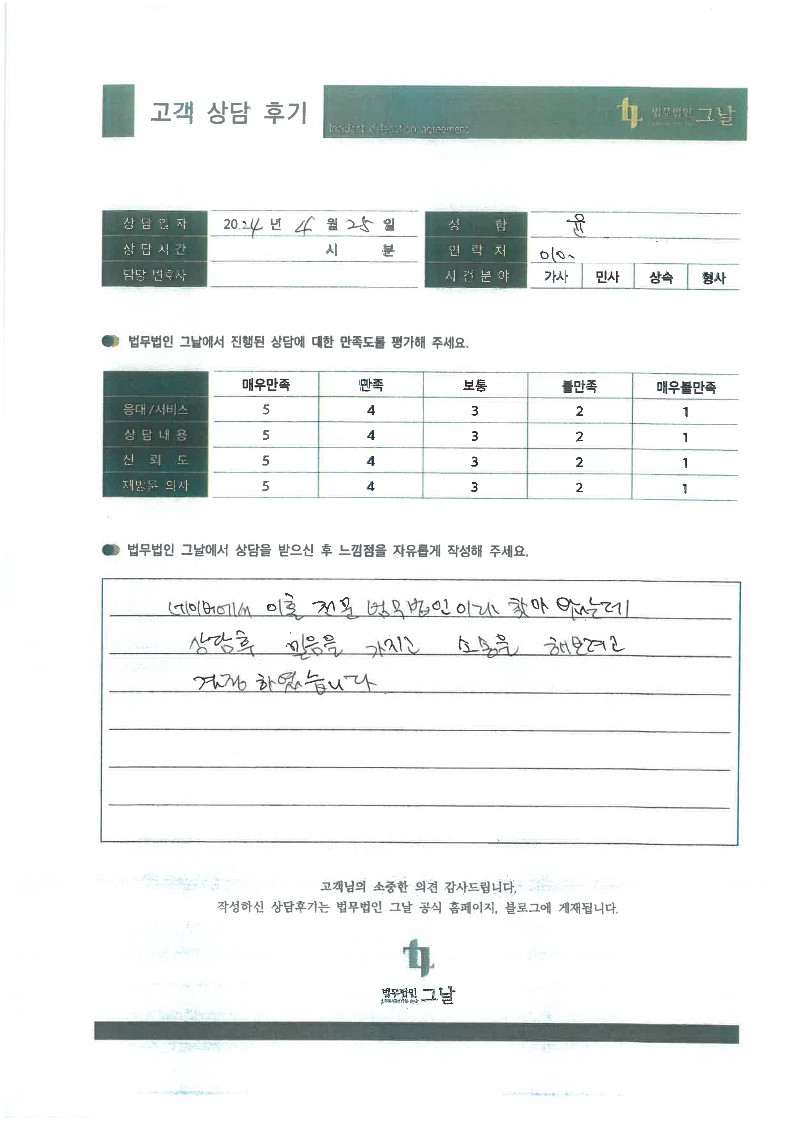 고객 상담 후기
Incident delegation agreement
법무법인 그날
상담일자 2024년 4월 25일 성 함 윤
상담시간 시 분 연 락 처 010-
담당 변호사 사건분야 가사 민사 상속 형사
법무법인 그날에서 진행된 상담에 대한 만족도를 평가해 주세요.
매우만족 만족 보통 불만족 매우불만족
응대/서비스 5 4 3 2 1
상담내용 5 4 3 2 1
신 뢰 도 5 4 3 2 1
재방문 의사 5 4 3 2 1
법무법인 그날에서 상담을 받으신 후 느낌점을 자유롭게 작성해 주세요.
네이버에서 이혼 전문 법무법인이라 찾아 왔는데
상담후 믿음을 가지고 소송을 해보려고
결정 하였습니다
고객님의 소중한 의견 감사드립니다.
작성하신 상담후기는 법무법인 그날 공식 홈페이지, 블로그에 게재됩니다.
법무법인 그날